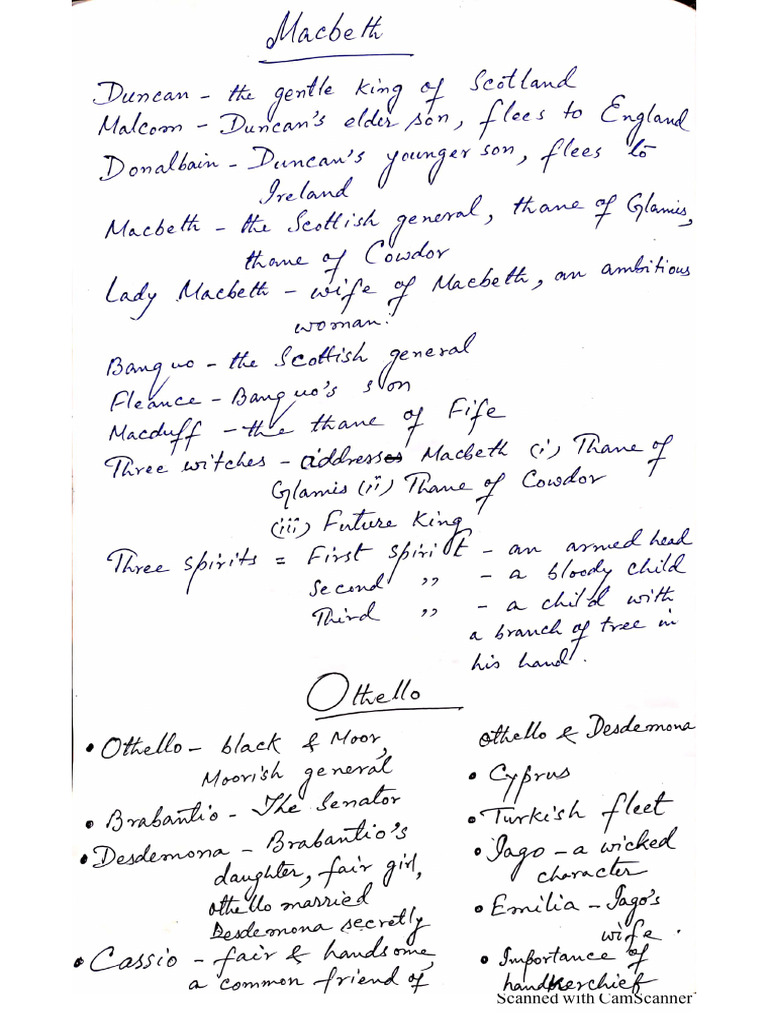 Macbeth
Duncan - the gentle king of Scotland
Malcom - Duncan's elder son, flees to England
Donalbain - Duncan's younger son, flees to
Ireland
Macbeth - the Scottish general, thane of Glamis,
thane of Cowdor
Lady Macbeth - wife of Macbeth, an ambitious
woman.
Banquo - the Scottish general
Fleance - Banquo's son
Macduff - the thane of Fife
Three witches - address Macbeth (i) Thane of
Glamis (ii) Thane of Cowdor
(iii) Future King
Three spirits = First spirit - an armed head
Second ,, - a bloody child
Third ,, - a child with
a branch of tree in
his hand.
Othello
• Othello - black & Moor,
Moorish general
• Brabantio - The Senator
• Desdemona - Brabantio's
daughter, fair girl,
Othello married
Desdemona secretly
• Cassio - fair & handsome,
a common friend of
Othello & Desdemona
• Cyprus
• Turkish fleet
• Iago - a wicked
character
• Emilia - Iago's
wife.
• Importance of
handkerchief
Scanned with CamScanner